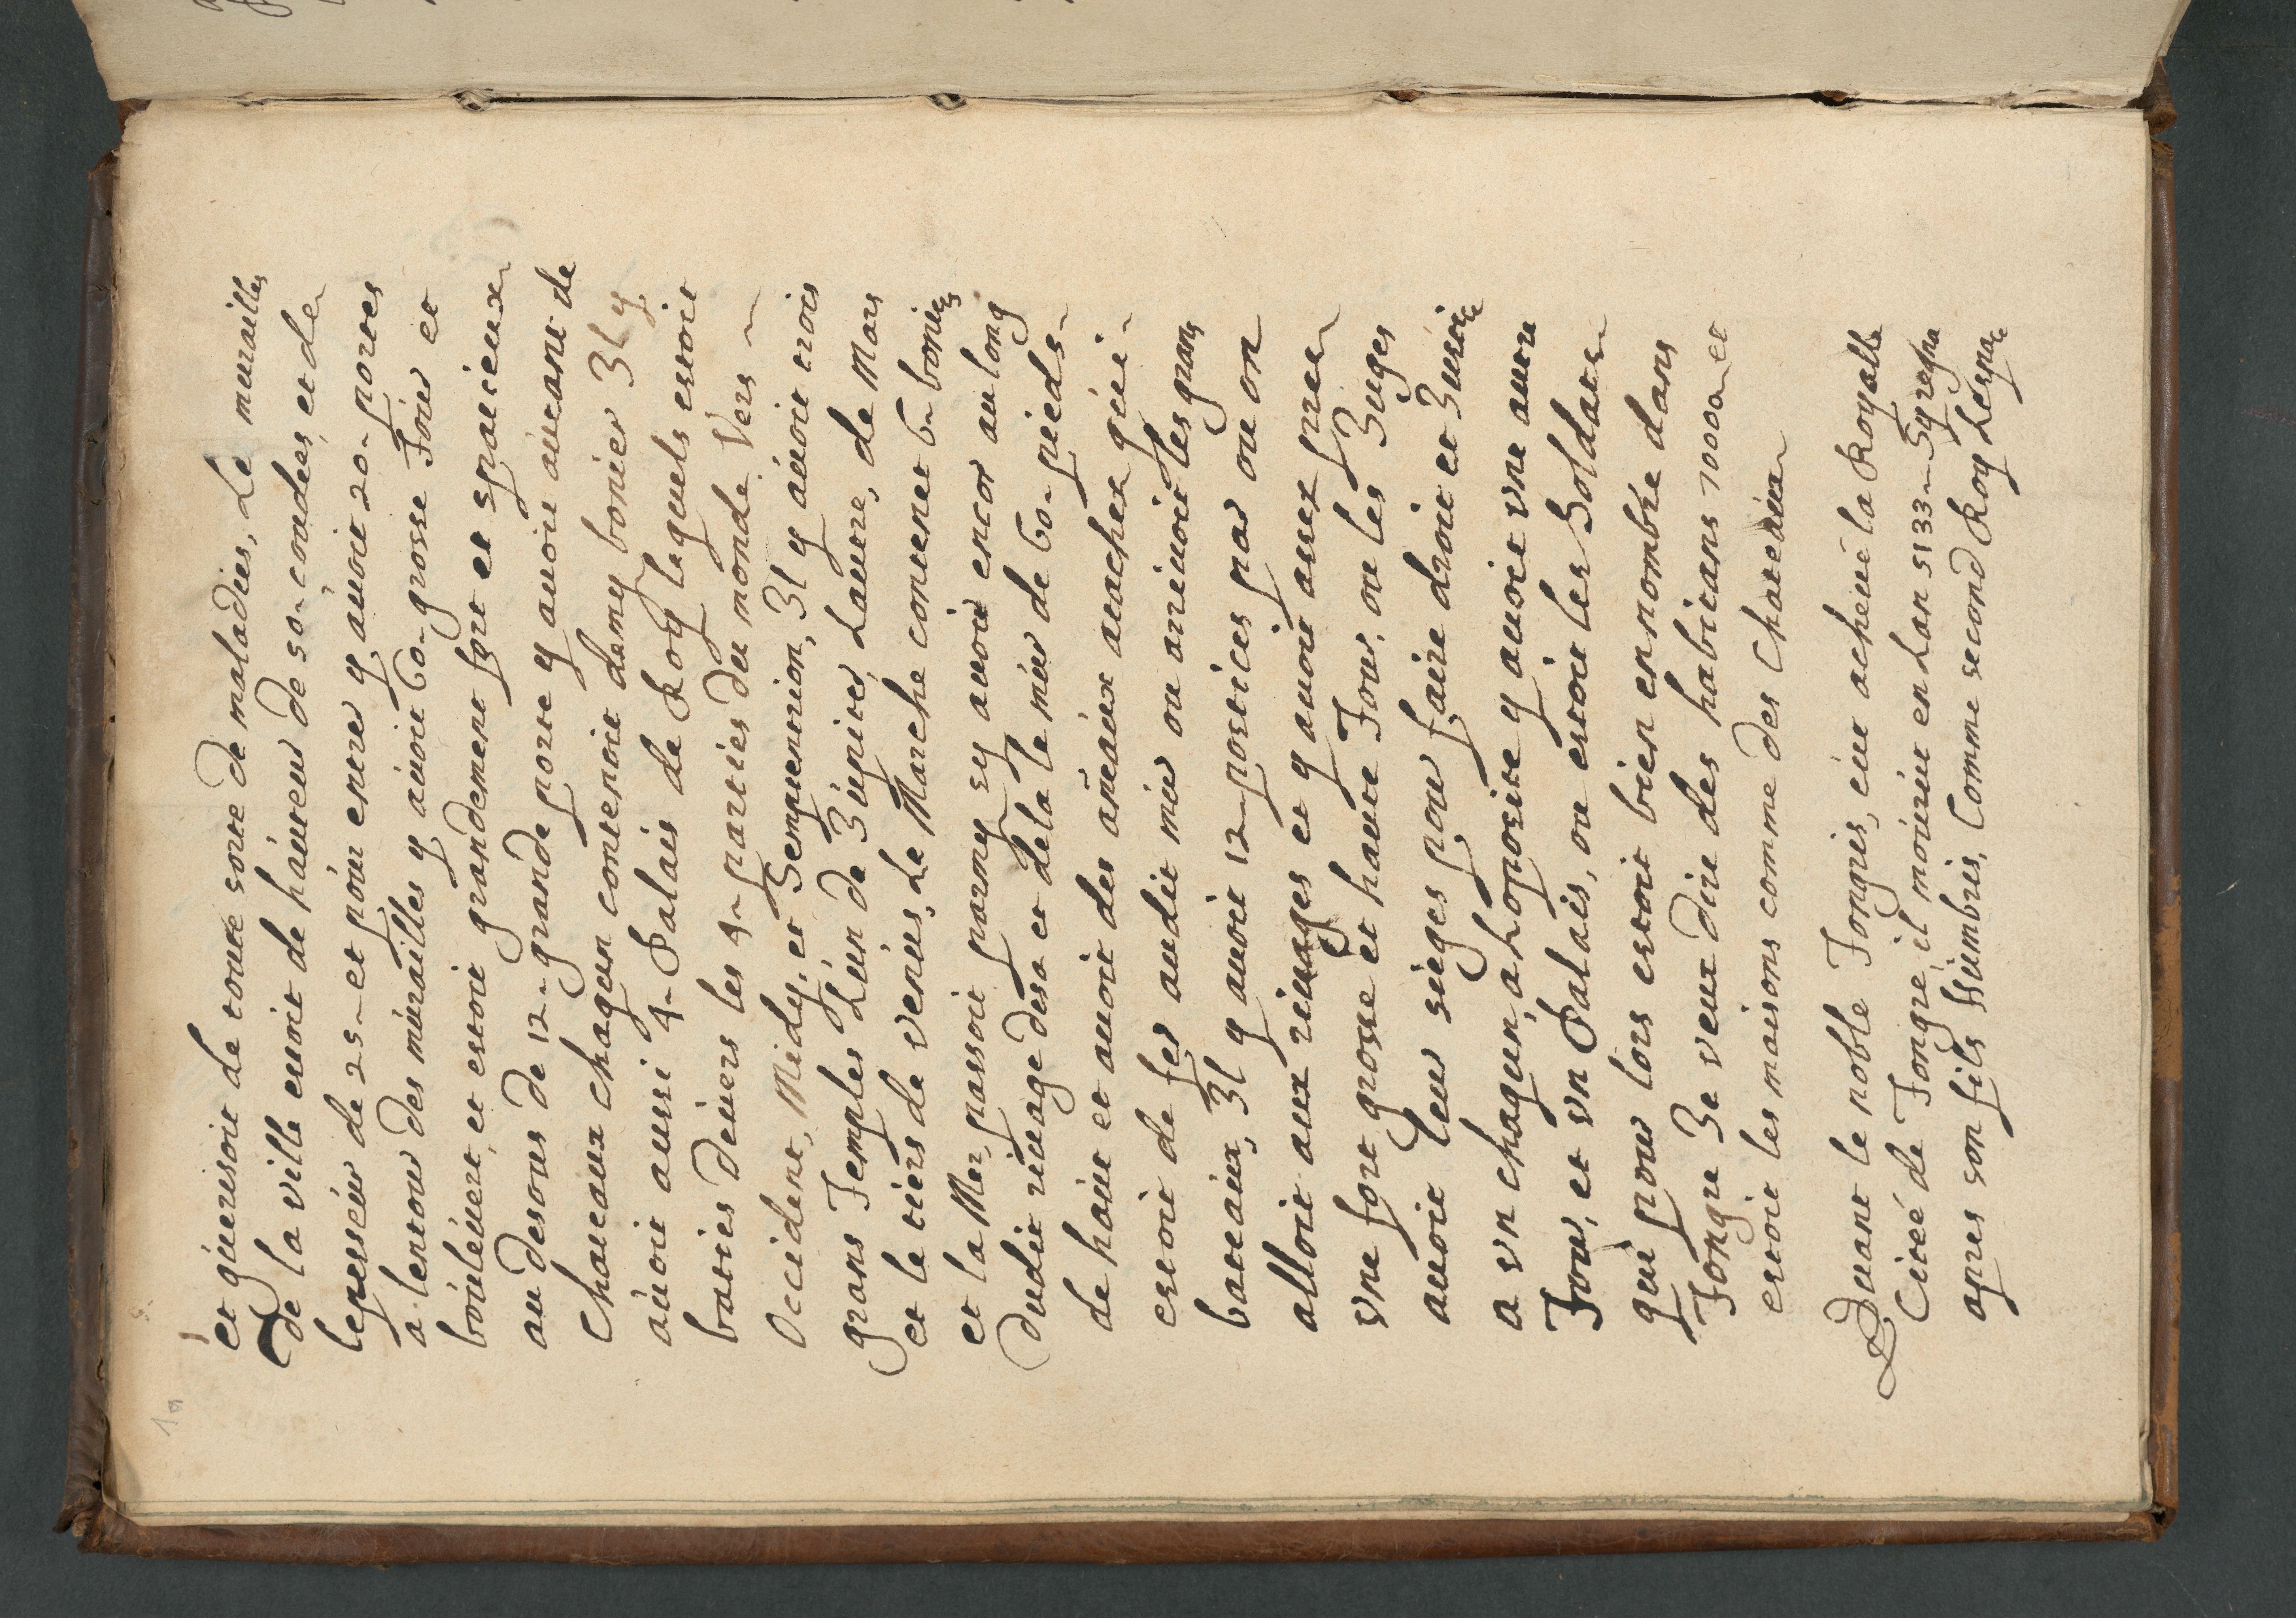 et guerisoit de toute sorte de maladies, Le murailles
de la ville estoit de hauteur de 50 coudees, et de
lepesseur de 25 et pour entrer y avoit 20 portes
a lentour des murailles y avoit 60 grosse Tour et
boulevert, et estoit grandement fort et spatieux
au desous de 12 grande porte y avoit autant de
Chateaux chaqun contenoit demy bonier Il y
avoit aussi 4 Palais de Roy lequels estoit
baties devers les 4 parties du monde Vers
Occident, Midy, et Septentrion, Il y avoit trois
grans Temples Lun de Jupiter, Lautre, de Mars
et le tiers de venus, Le Marche contenet 6 boniers
et la Mer passoit parmy sy avoit encor au long
dudit rivage desa et dela le mur de 60 pieds
de haut et avoit des aneaux atachez qui
estoit de fer audit mur ou arrivoit les grans
bateaux, Il y avoit 12 postices par ou on
alloit aux rivages et y avoit assez prez
vne fort grosse et haute Tour, ou les Juges
avoit leur sieges pour faire droit et Justice
a vn chaqun, a Loposite y avoit vne autre
Tour, et vn Palais, ou estoit les Soldats
qui pour lors estoit bien en nombre dans
Tongre Je veux dire des habitans 70000 et
estoit les maisons comme des Chateaux
Quant le noble Tongris, eut acheue la Royalle
Citeé de Tongre, il mourut en Lan 5133
apres son fils Humbris, Comme second Roy